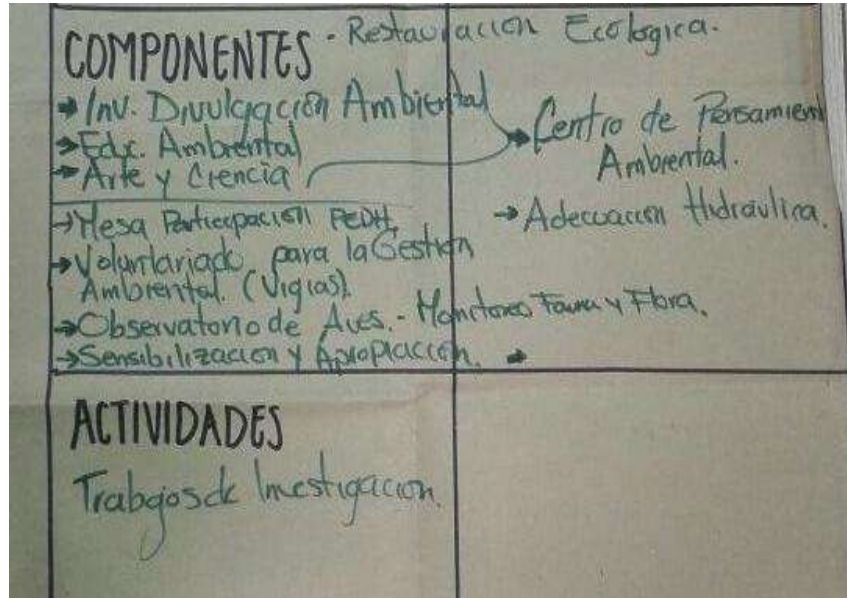 COMPONENTES - Restauración Ecologica.
→ Inv. Divulgación Ambiental
→ Edc. Ambiental
→ Arte y Ciencia
→ Centro de Pensamient
Ambiental.
→ Mesa Participación PEDH.
→ Adecuación Hidráulica.
→ Voluntariado para la Gestión
Ambiental. (Vigias)
→ Observatorio de Aves. - Monitoreo Fauna y Flora.
→ Sensibilización y Apropiación. →
ACTIVIDADES
Trabajos de Investigación.